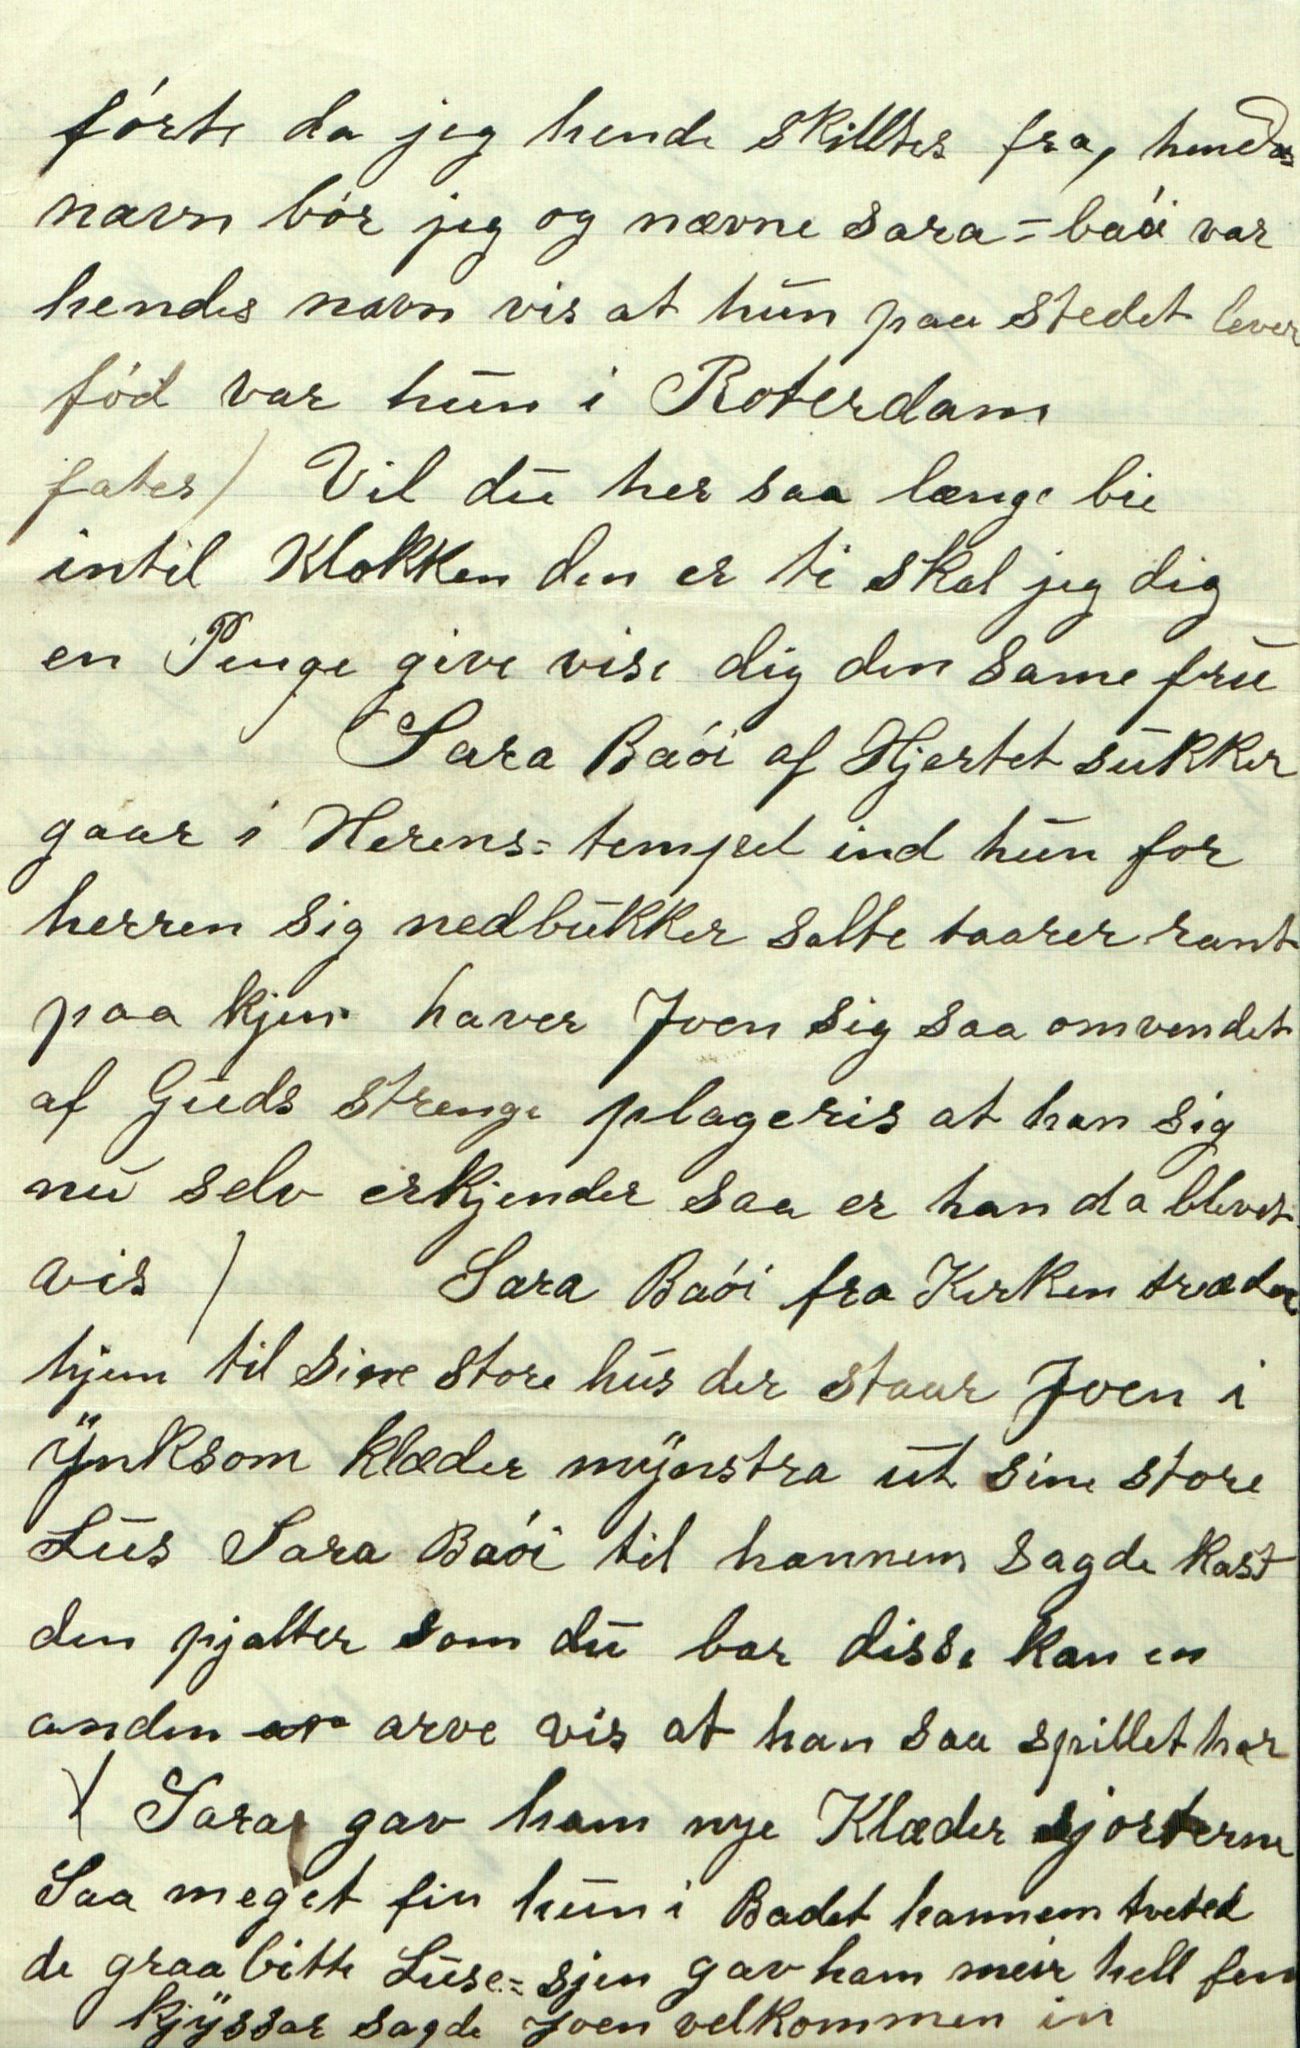 fórte da jeg hende skilltes fra, hendes
navn bór jeg og nævne sara=baói var
hendes navn vis at hun paa stedet lever
fód var hun i Roterdam
fater) Vil du her saa længe bie
intil Klokken den er ti skal jeg dig
en Penge give vise dig den same frue
Sara Baói af Hjertet sukker
gaar i Herens=tempel ind hun for
herren sig nedbukker salte taarer rant
paa kjen haver Joen sig saa omvendet
af Guds strenge plageris at han sig
nu selv erkjender saa er han da blevet
vis) Sara Baói fra Kirken træder
hjem til sine store hus der staar Joen i
Ynksom klæder mÿnstra ut sine store
Lus Sara Baói til hannem sagde kast
den pjalter som du bar disse kan en
anden arve vis at han saa spillet har
) Sara gav ham nye Klæder sjorterne
Saa meget fin hun i Badet hannem tveted
de graa bitte Luse=sjen gav ham meir hell fem
kjÿssar sagde Joen velkommen in